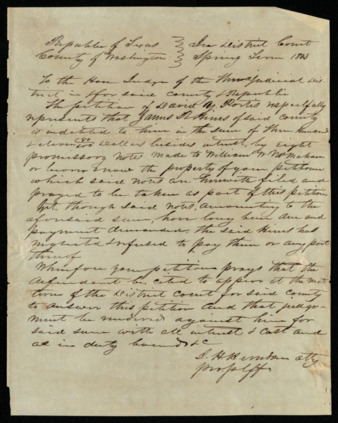 Republic of Texas } In District Court
County of Washington } Spring Term 1843
To the Hon Judge of the Third Judicial Dis
trict in & for said county & Republic
The petition of David Portis respectfully
represents that James of said county
is indebted to him in the sum of Three hundred
& eleven dollars besides interest, by eight
promissory notes made to William W McMahan
or bearer now the property of your petitioner
which said notes are herewith filed and
prayed to be taken as part of this petition
Yet though said notes, amounting to the
aforesaid sum, have long been due and
payment demanded, the said has
neglected & refused to pay them or any part
thereof
Wherefore your petitioner prays that the
defendant be cited to appear at the next
term of the District court for said county
to answer this petition and that judge-
ment be rendered against him for
said sum with all interest & cost and
as in duty bound &c
J. H. Herndon atty
pro plff